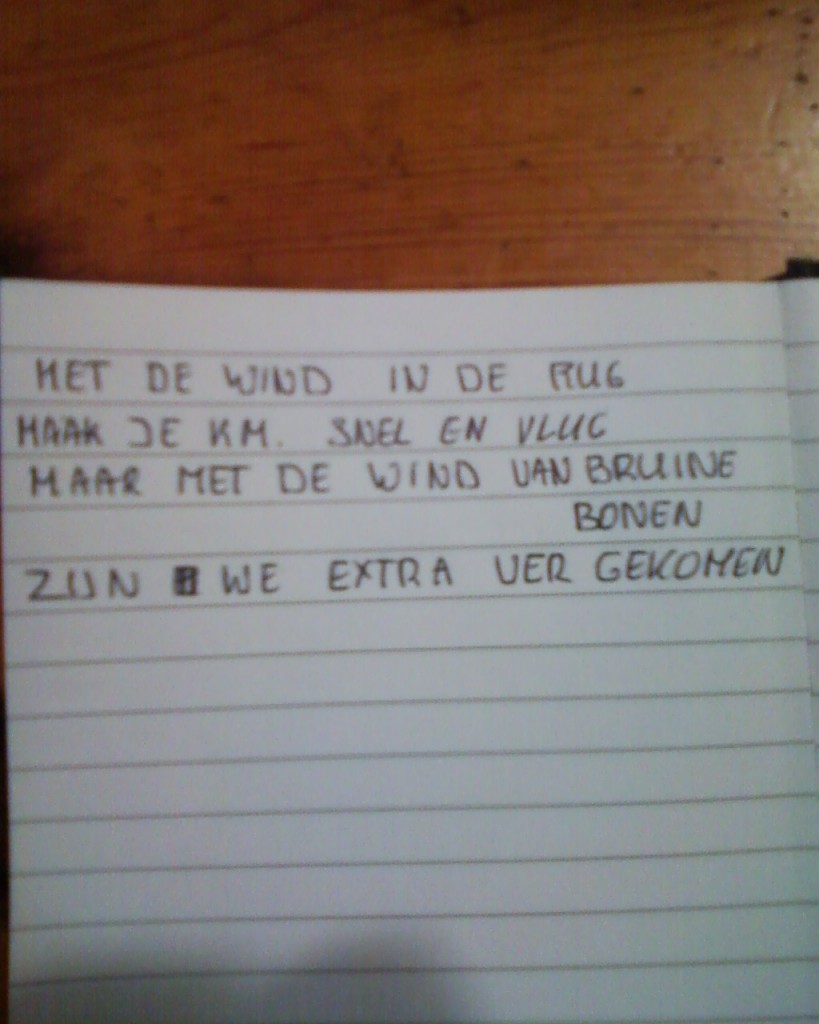 MET DE WIND IN DE RUG
MAAK JE KM. SNEL EN VLUG
MAAR MET DE WIND VAN BRUINE
BONEN
ZIJN WE EXTRA VER GEKOMEN